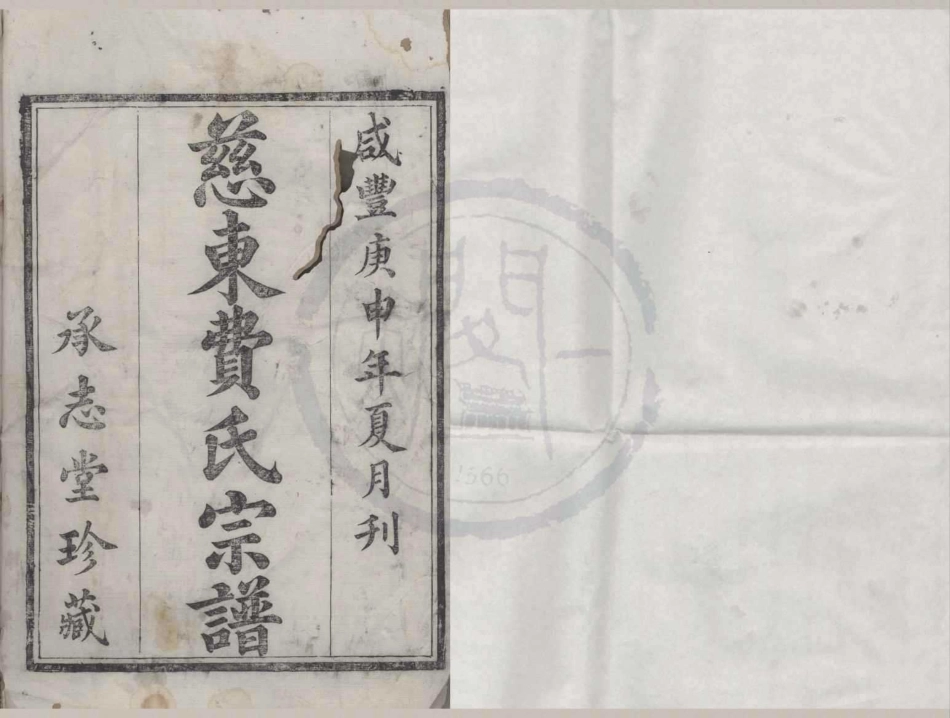 咸豐庚申年夏月刊
慈東費氏宗譜
承志堂珍藏
1566